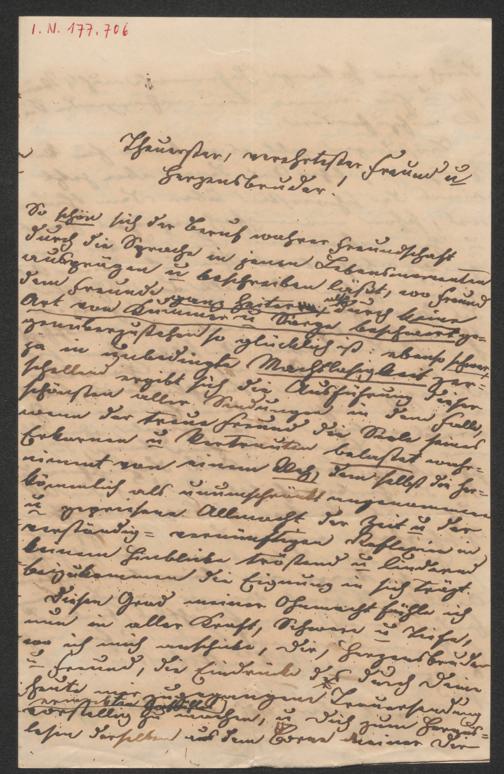 I. N. 177.706
Theuerster, verehrtester Freund u
Herzensbruder!
So schön sich der Beruf wahrer Freundschaft
durch die Sprache in jenen Lebensmomenten
ausprägen u beschreiben läßt, wo Freund
dem Freunde ganz heiter durch keine
Art von Kummer u Sorge beschwert ge-
genüberzustehen so glücklich ist: ebenso schwer
ja in unbedingte Machtlosigkeit zer-
schellend ergibt sich die Ausführung dieser
schönsten aller Sendungen in dem Falle,
wenn der treue Freund die Seele seines
Erkornen u Vertrauten belastet wahr-
nimmt von einem Weh, dem selbst die her-
kömmlich als unumschränkt angenommene
u gepriesene Allmacht der Zeit u der
verständig= vernünftigen Reflexion in
keinem Hinblicke tröstend u lindernd
beizukommen die Eignung in sich trägt.
Diesen Grad meiner Ohnmacht fühle ich
nun in aller Kraft, Schwere u Tiefe,
wo ich mich anschicke, Dir, Herzensbruder
u Freund, die Eindrücke der durch Deine
heute mir zugegangene Trauersendung
vorstellig zu machen, u Dich zum Herzens=
lesen derselben aus dem Borne meiner Dir